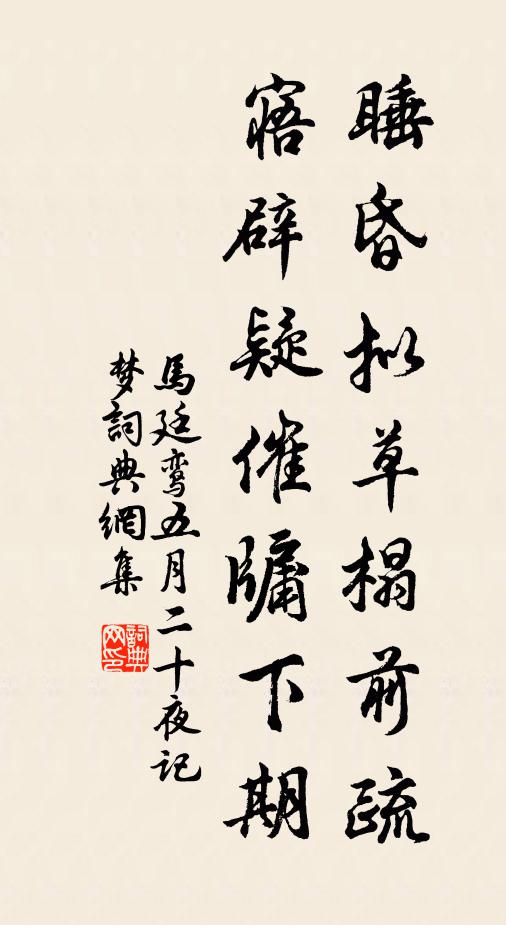 睡昏拟草榻前疏
寤辟疑催牖下期
馬廷鸾五月二十夜记
梦詞典網集
詞典网印